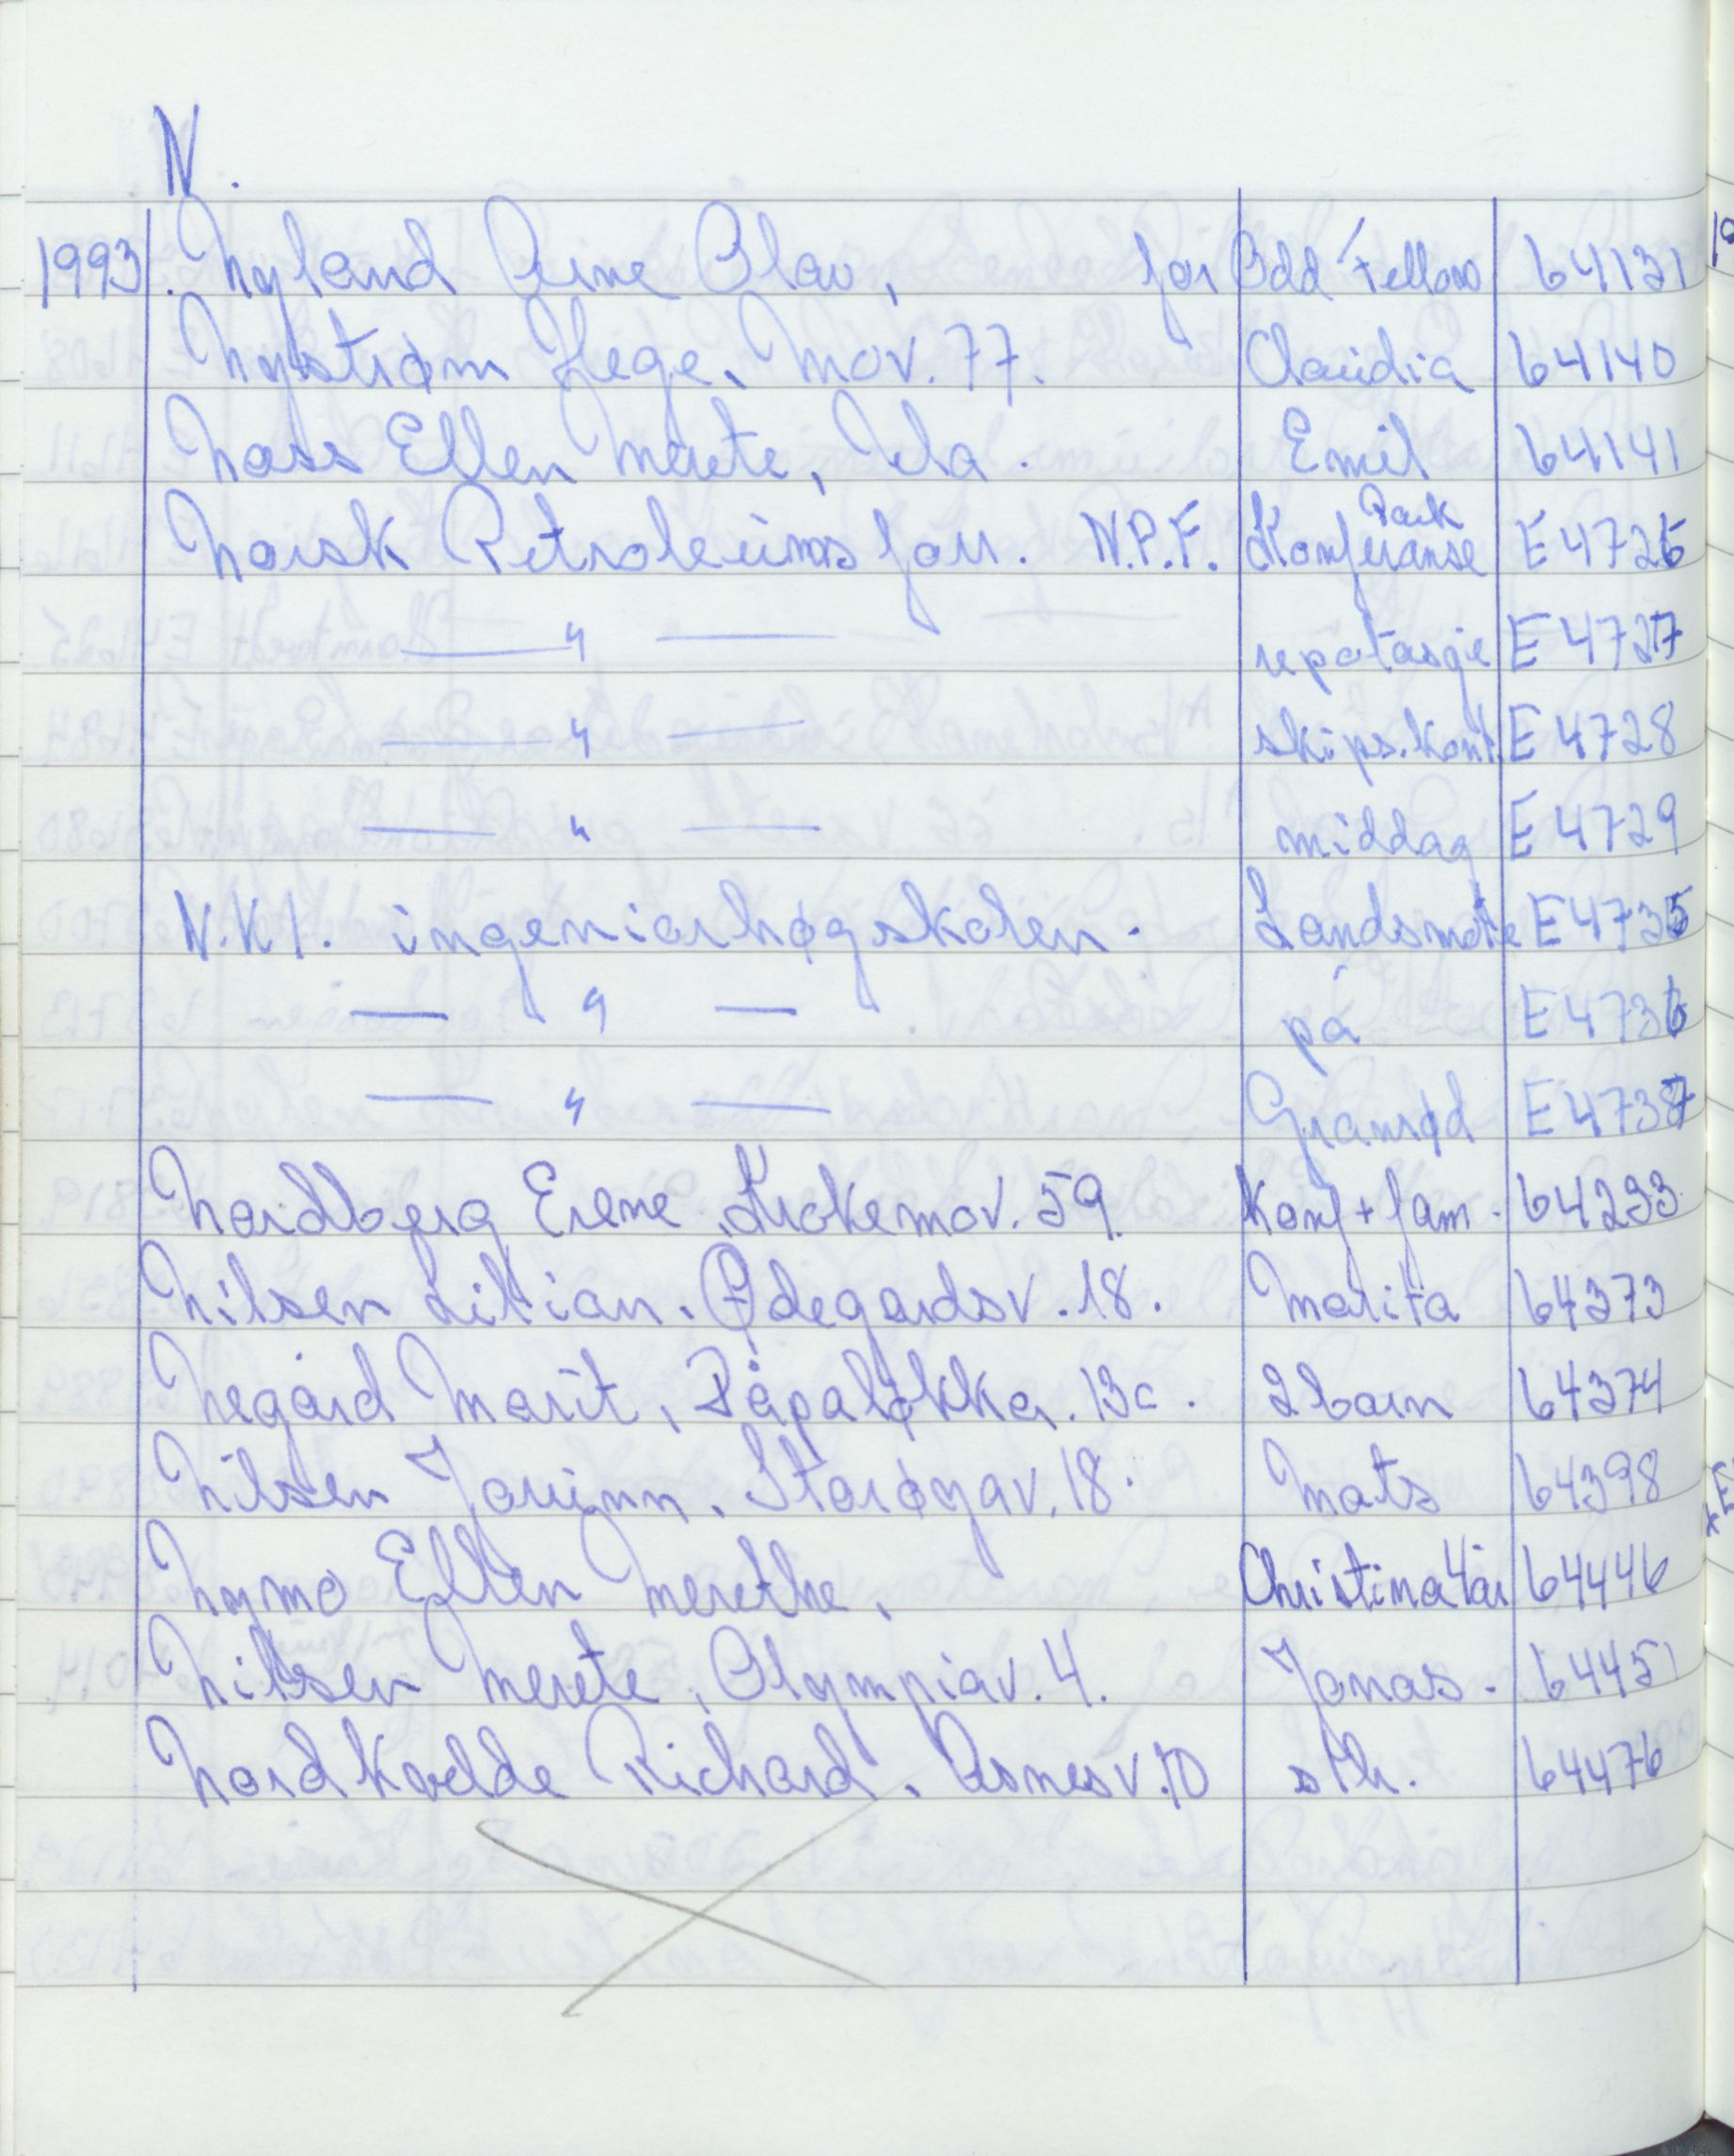 N.
1993. Nyland Arne Olav, for Odd Fellow 64131
Nystrøm Hege, Mov. 77. Claudia 64140
Næss Ellen Merete, Ula. Emil 64141
Norsk Petroleums forr. N.P.F. Konferanse Park E 4726
— " — repotasje E 4727
— " — skips.kont. E 4728
— " — middag E 4729
N.K.I. ingeniørhøgskolen. Landsmøte E 4735
— " — på E 4736
— " — Gramrød E 4737
Nordberg Erene, Krokemov. 59. Konf + fam. 64233
Nilsen Lilian, Ødegårdsv. 18. Marita 64373
Negård Marit, Påpaløkka. 13c. 2 barn 64374
Nilsen Jorunn, Storøyav. 18. Mats 64398
Nymo Ellen Merethe, Christina 4 år 64446
Nilsen Merete, Olympiav. 4. Jonas. 64451
Nordkvelde Richard, Asnesv. 10 sth. 64476